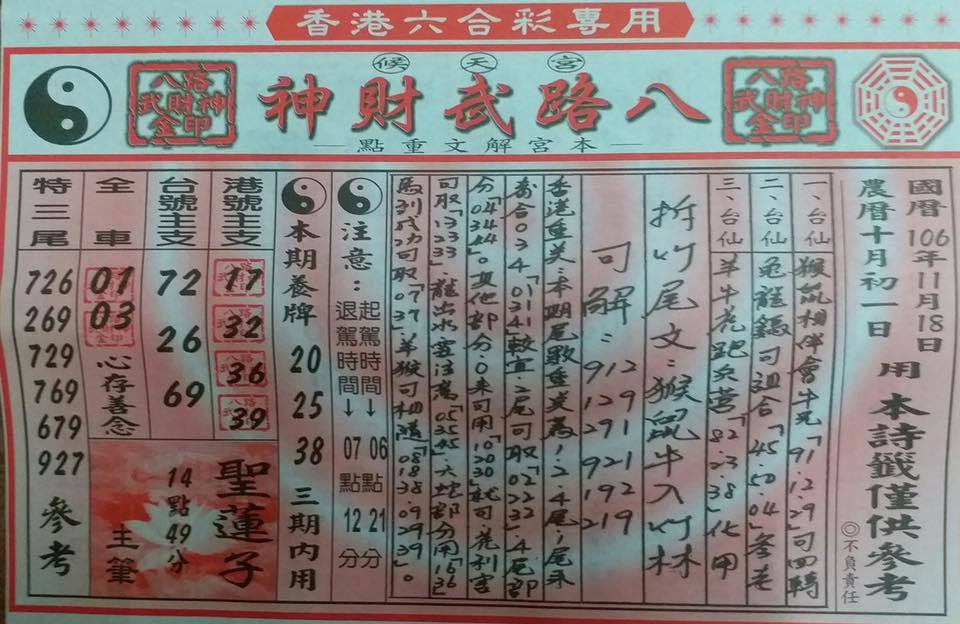 香港六合彩專用
候天宮
八路武財神
八路武財神金印
八路武財神金印
本宮解文重點
國曆106年11月18日
農曆十月初一日
用本詩籤僅供參考
◎不負責任
一、台仙 猴鼠相伴會牛兄「91.12.29」可四轉
二、台仙 兔龍 可組合「45.50.04」
三、台仙 羊牛花跑兵營「82.23.38」化甲
拆竹尾文：猴鼠牛入竹林
可解：912 129 291 921 192 219
香港重 ：本期尾數重 為：1.2.4尾.1尾
合034「0131 41較宜.2尾可取「02 22 32」.4尾部
分「04 34 44」。其他部分.0來可用「10 20 30」就可.
可取「13 23 33」.龍出水 注 「05 25 45」.大蛇部分用「16 36」
馬到成功可取「07 37」.羊猴可相隨「08 18 38.09 29 39」。
注意：
起駕時間→06點21分
退駕時間→07點12分
本期養牌
20
25
38
三期內用
港號主支
17
32
36
39
台號主支
72
26
69
全車
01
03
心存善念
特三尾
726
269
729
769
679
927
參考
聖蓮子
14點49分
主筆